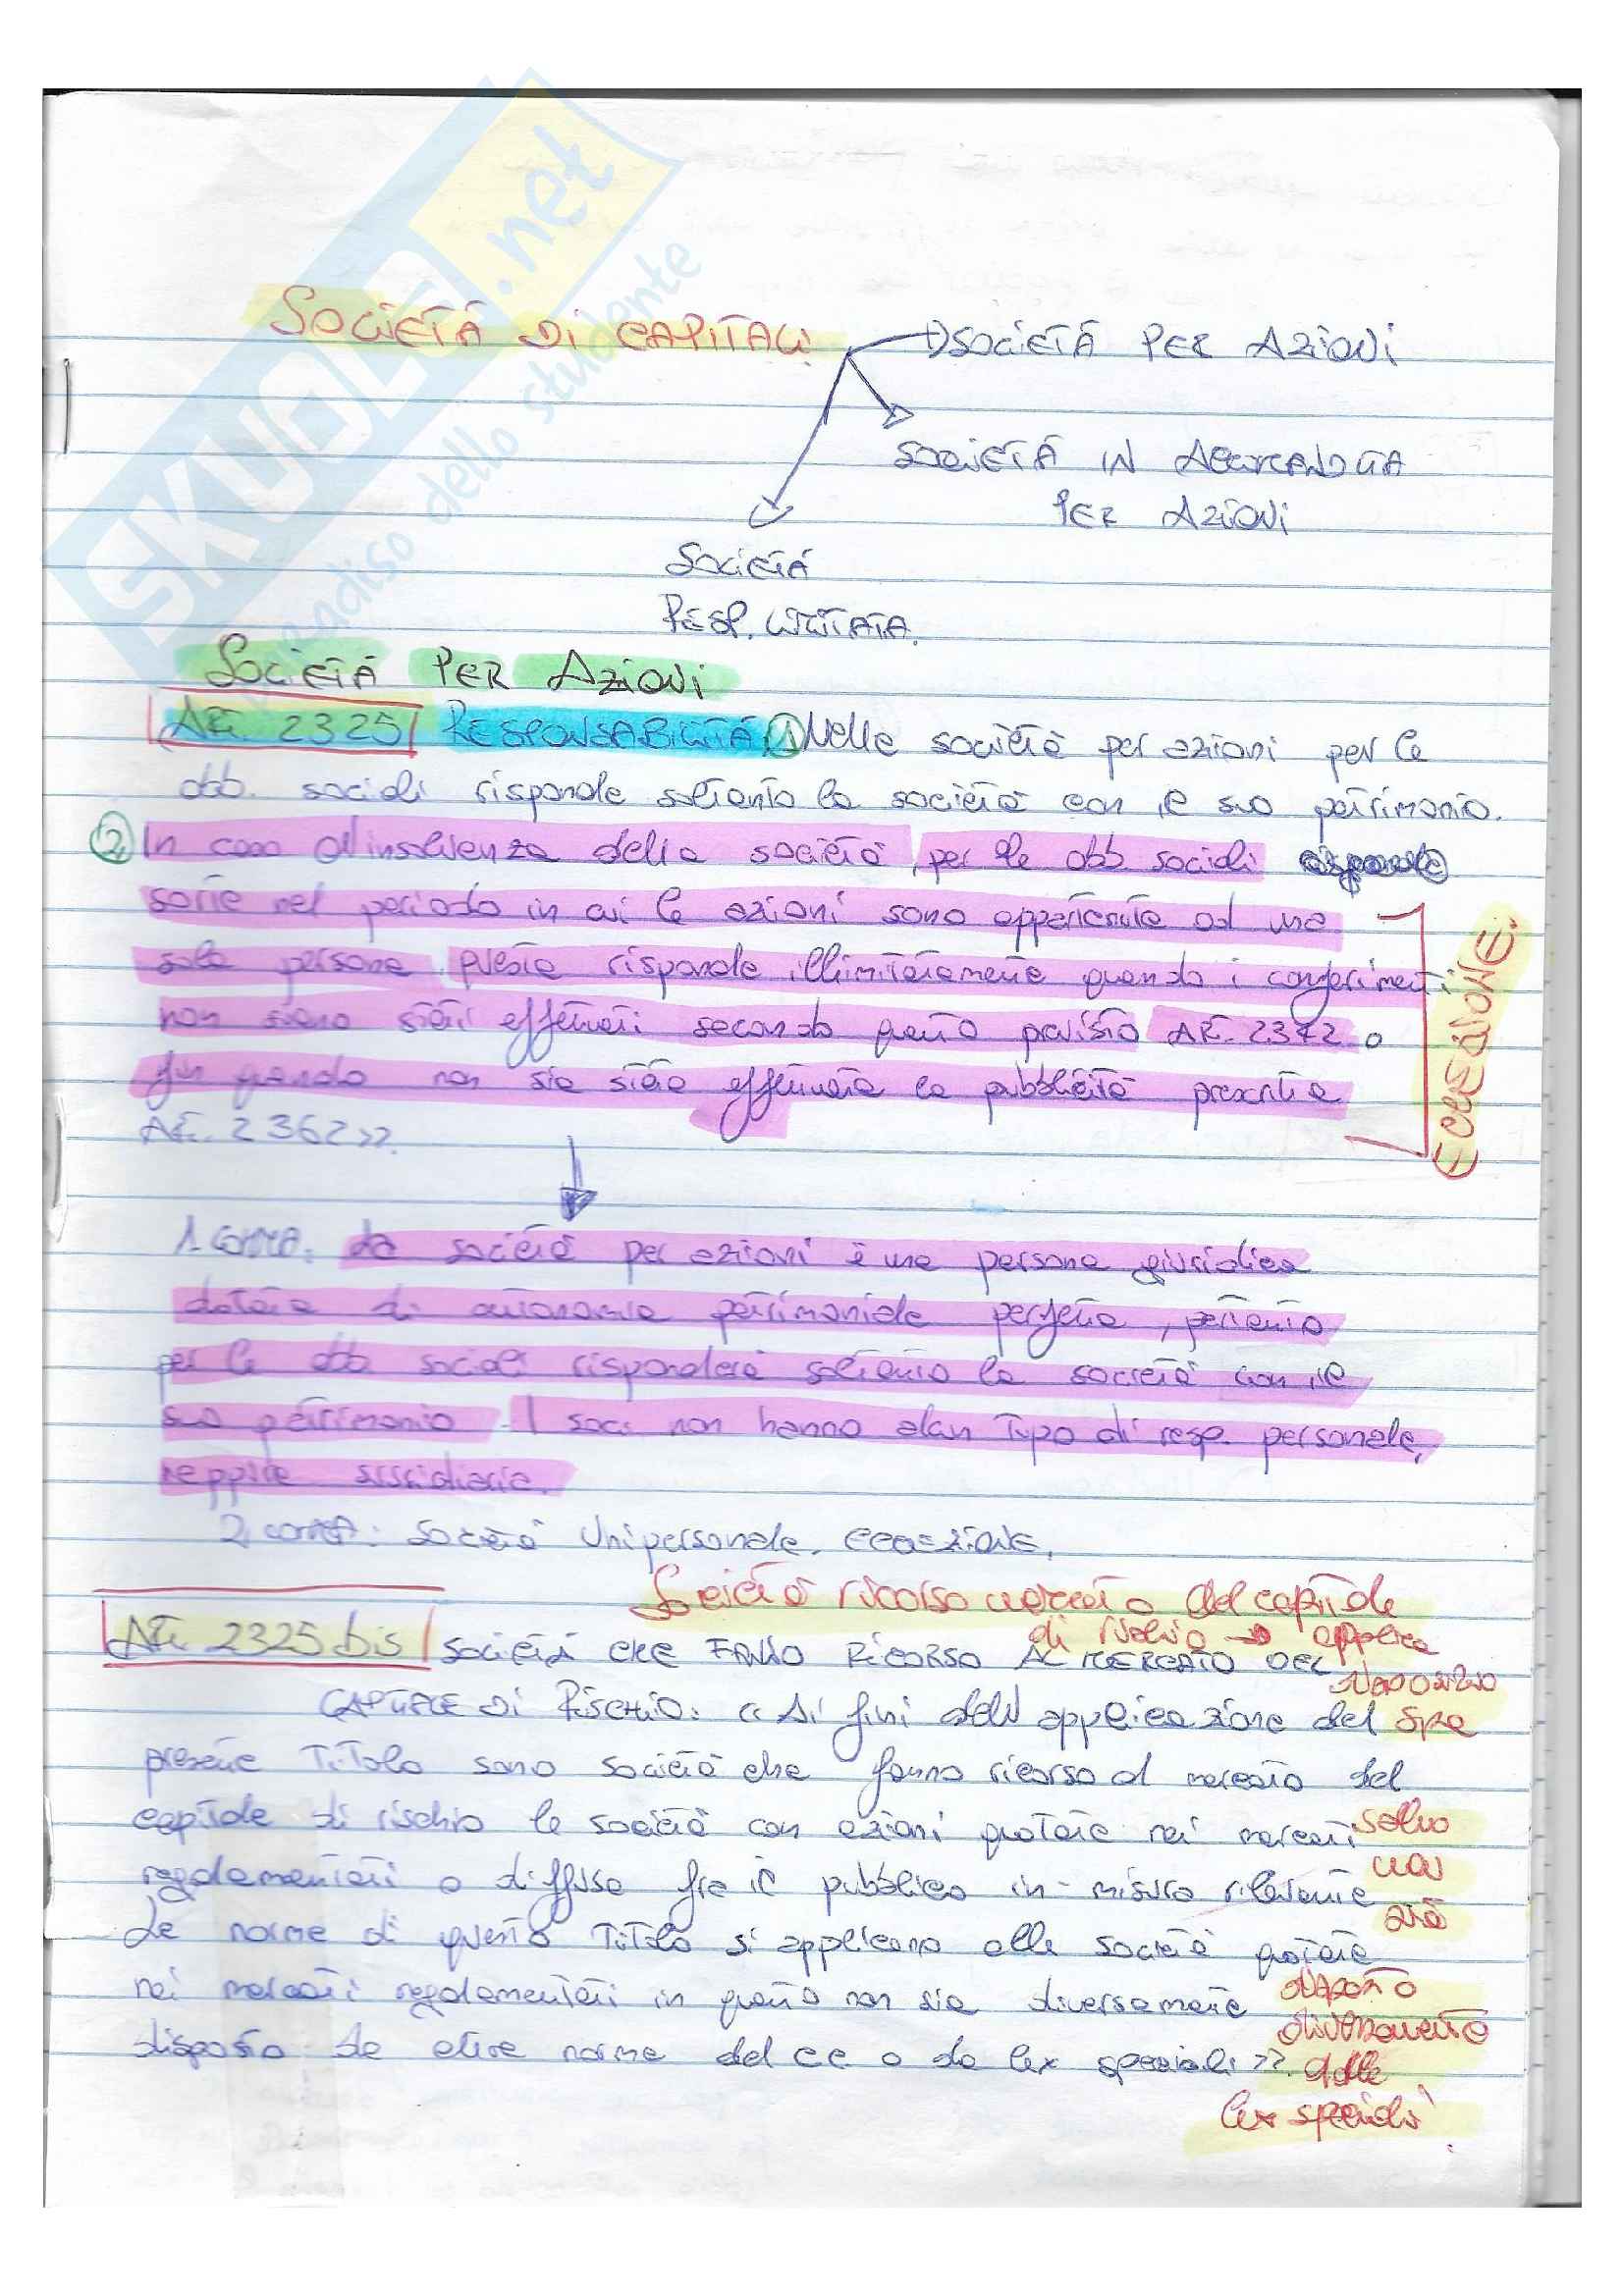 SKUOLA.net
paradiso dello studente
SOCIETÁ DI CAPITALI
SOCIETÁ PER AZIONI
SOCIETÁ IN ACCOMANDITA
PER AZIONI
SOCIETÁ
RESP. LIMITATA.
SOCIETÁ PER AZIONI
ART. 2325 RESPONSABILITÁ. 1) Nelle società per azioni per le
obb. sociali risponde soltanto la società con il suo patrimonio.
2) In caso d'insolvenza della società, per le obb. sociali
sorte nel periodo in cui le azioni sono appartenute ad una
sola persona, questa risponde illimitatamente quando i conferimenti
non siano stati effettuati secondo quanto previsto ART. 2342 o
fin quando non sia stata effettuata la pubblicità prescritta
ART. 2362>>.
ECCEZIONE.
1 COMMA: La società per azioni è una persona giuridica
dotata di autonomia patrimoniale perfetta, pertanto
per le obb. sociali risponderà soltanto la società con il
suo patrimonio. I soci non hanno alcun tipo di resp. personale,
neppure sussidiaria.
2 COMMA: Società Unipersonale. ECCEZIONE.
Società ricorso mercato del capitale
di rischio → applica
ART. 2325 bis SOCIETÁ CHE FANNO RICORSO AL MERCATO DEL
CAPITALE DI RISCHIO: << Ai fini dell'applicazione del
Spa
presente Titolo sono società che fanno ricorso al mercato del
capitale di rischio le società con azioni quotate nei mercati
salvo
regolamentati o diffuse fra il pubblico in misura rilevante
non
sia
Le norme di questo Titolo si applicano alle società quotate
nei mercati regolamentati in quanto non sia diversamente
disposto
diversamente
disposto da altre norme del cc o da lex speciali>>.
dalle
lex speciali